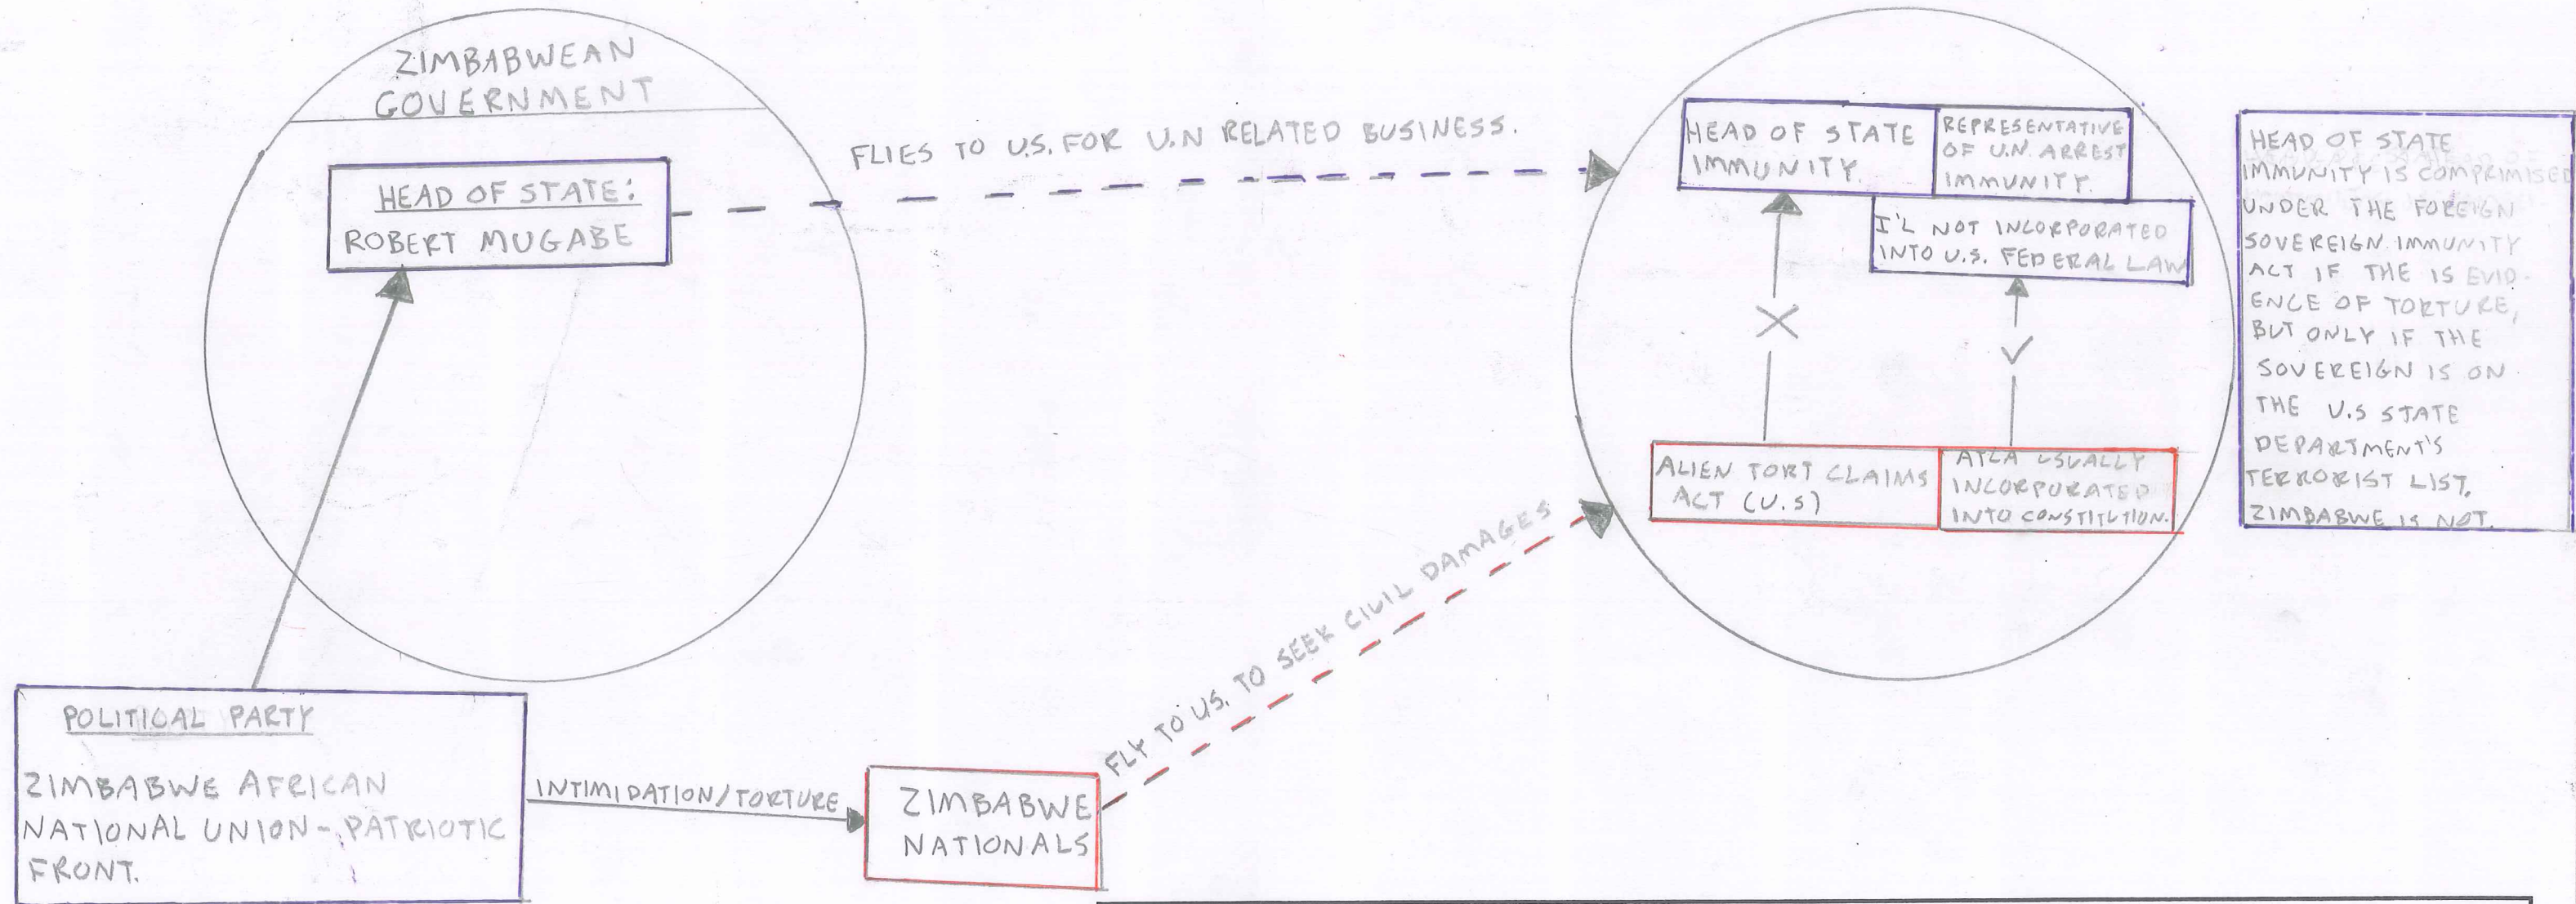 ZIMBABWEAN
GOVERNMENT
HEAD OF STATE:
ROBERT MUGABE
FLIES TO U.S. FOR U.N RELATED BUSINESS.
HEAD OF STATE
IMMUNITY.
REPRESENTATIVE
OF U.N. ARREST
IMMUNITY.
I'L NOT INCORPORATED
INTO U.S. FEDERAL LAW
ALIEN TORT CLAIMS
ACT (U.S)
ATCA USUALLY
INCORPORATED
INTO CONSTITUTION.
HEAD OF STATE
IMMUNITY IS COMPRIMISED
UNDER THE FOREIGN
SOVEREIGN IMMUNITY
ACT IF THE IS EVID-
ENCE OF TORTURE,
BUT ONLY IF THE
SOVEREIGN IS ON
THE U.S STATE
DEPARTMENT'S
TERRORIST LIST.
ZIMBABWE IS NOT.
POLITICAL PARTY
ZIMBABWE AFRICAN
NATIONAL UNION - PATRIOTIC
FRONT.
INTIMIDATION/TORTURE
ZIMBABWE
NATIONALS
FLY TO U.S. TO SEEK CIVIL DAMAGES